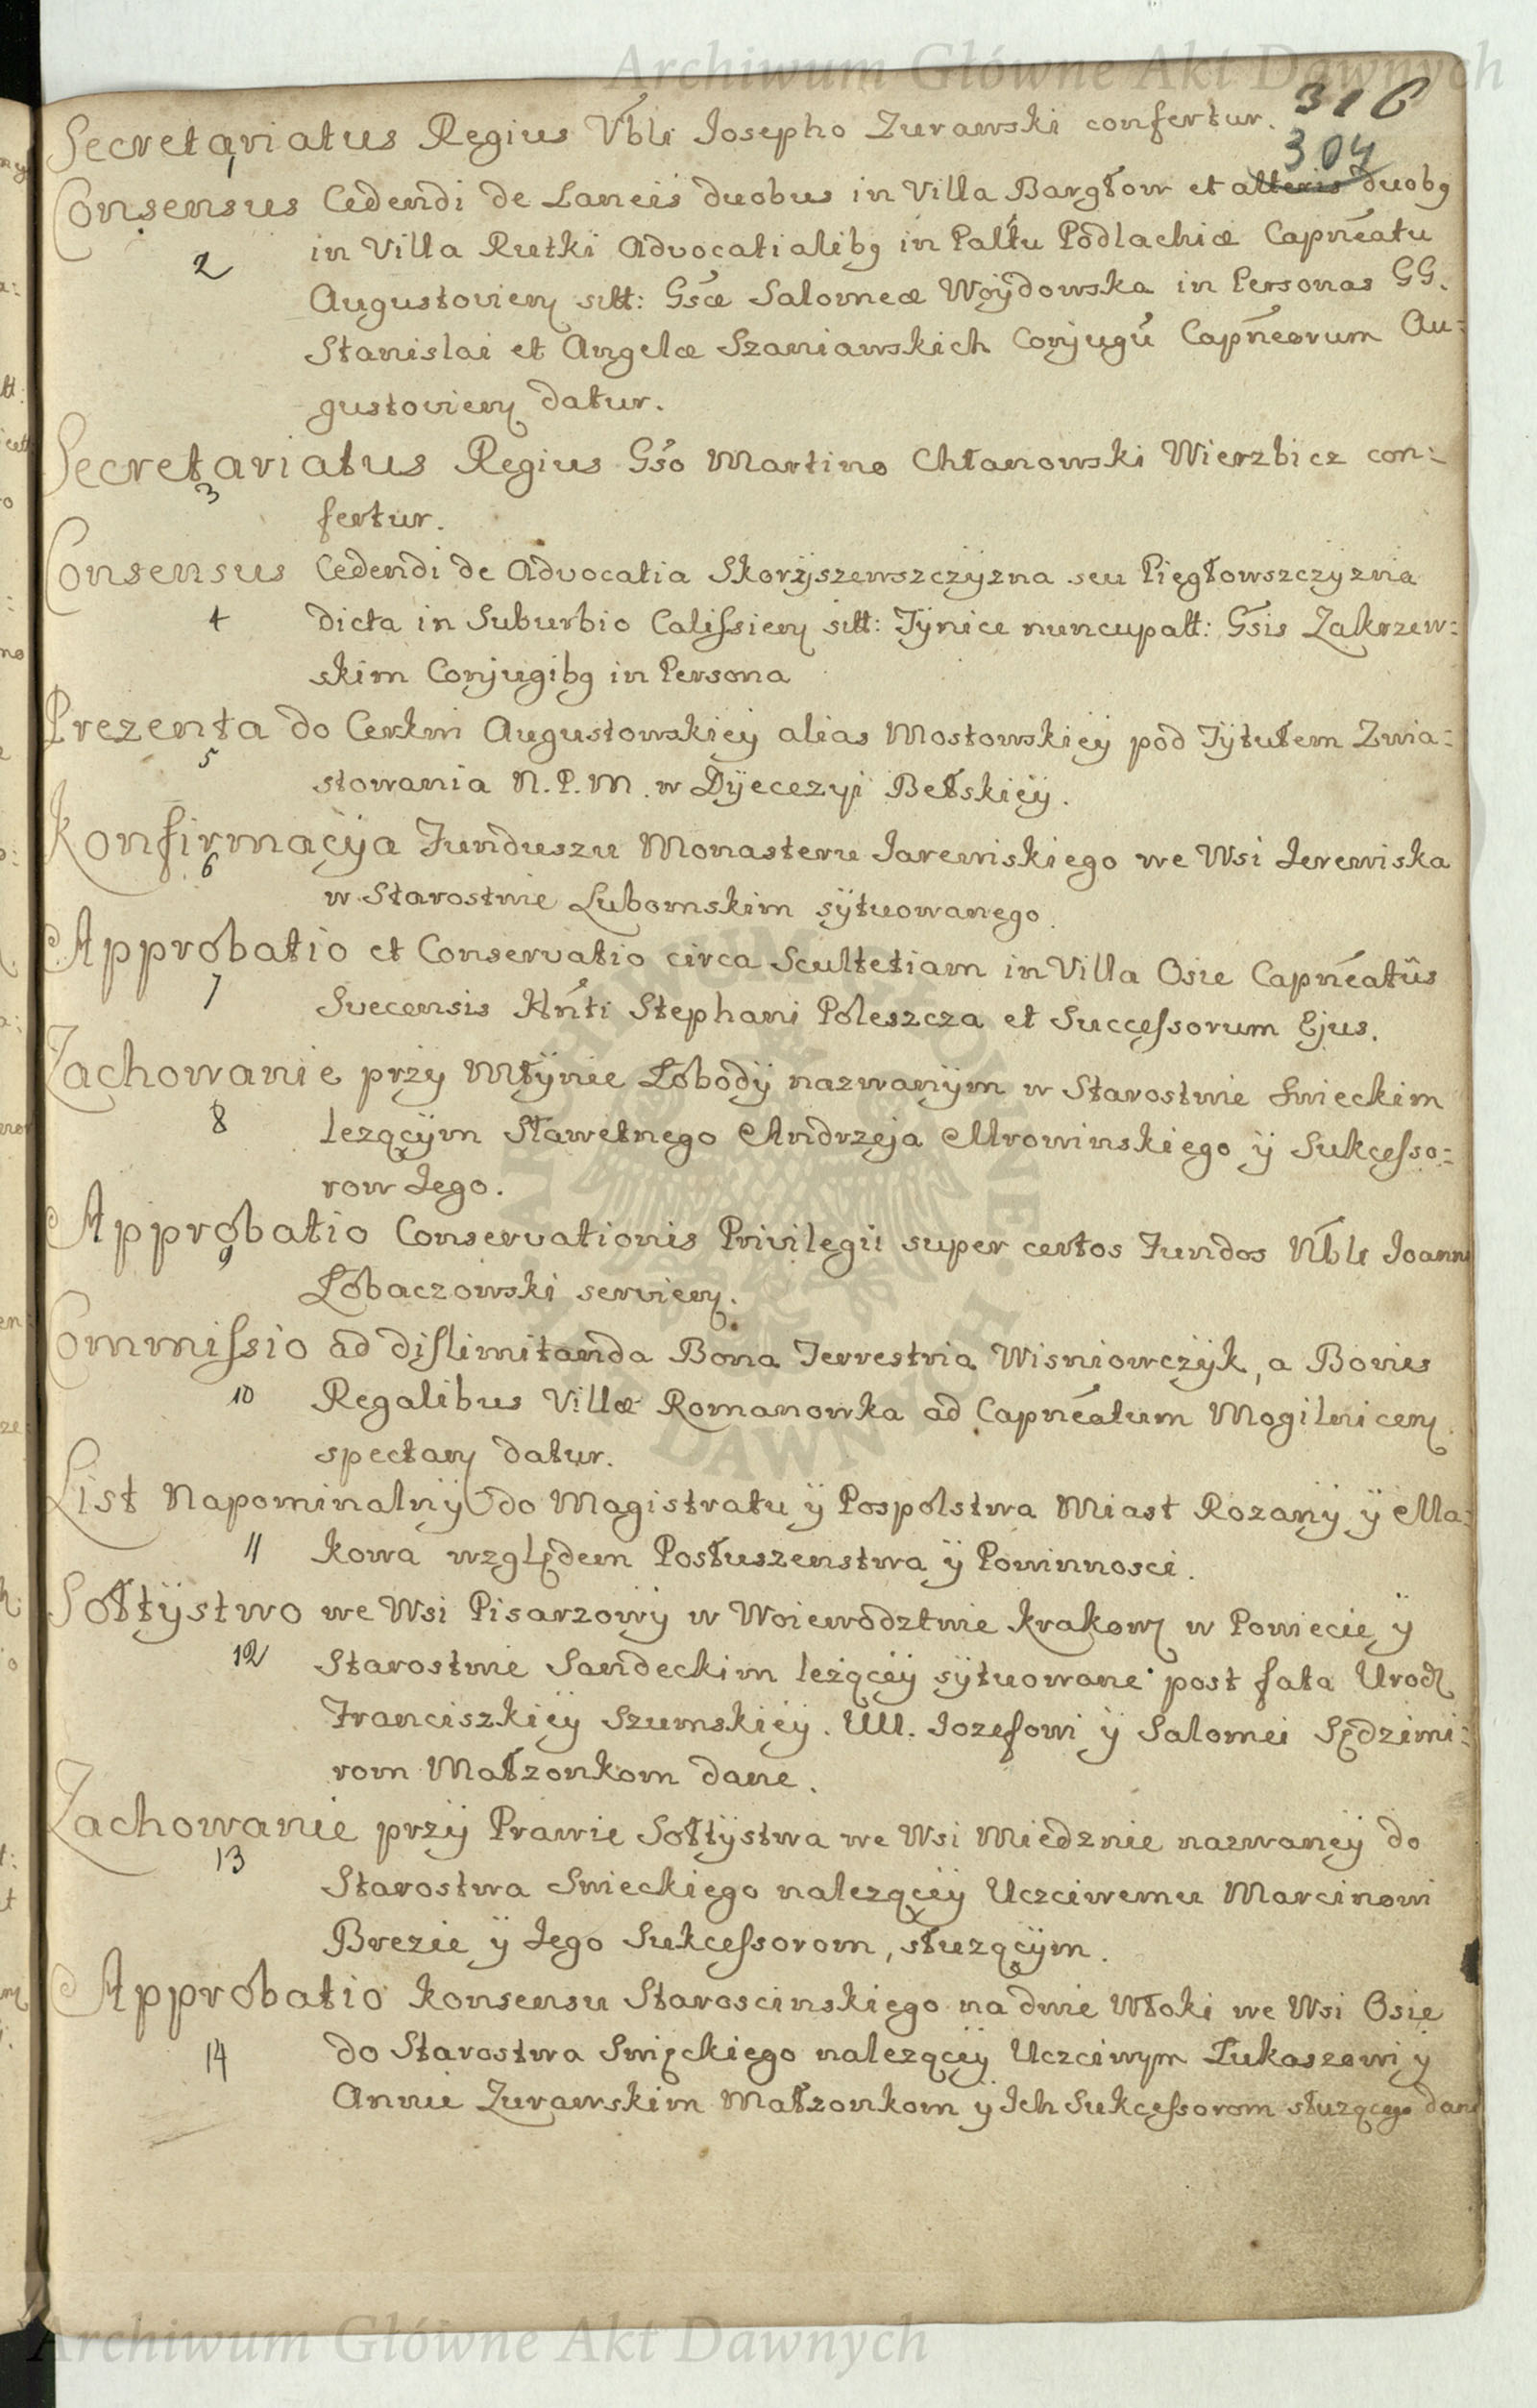 Archiwum Główne Akt Dawnych
316
Secretariatus Regius Nbli Josepho Zurawski confertur.
304
1
Consensus Cedendi de Laneis duobus in Villa Bargłow et alteris duobg
2 in Villa Rutki Advocatialibg in Pallu Podlachiæ Capneatu
Augustovien sitt: Gsæ Salomeæ Woÿdowska in Personas GG.
Stanislai et Angelæ Szaniawskich Conjugu Capneorum Au=
gustovien datur.
Secretariatus Regius Gso Martino Chłanowski Wierzbicz con=
3 fertur.
Consensus Cedendi de Advocatia Skorÿszewszczyzna seu Pięgłowszczyzna
4 dicta in Suburbio Calissien sitt: Tÿnice nuncupatt: Gsis Zakrzew=
skim Conjugibg in Persona
Prezenta do Cerkwi Augustowskiey alias Mostowskiÿ pod Tÿtułem Zwia=
5 stowania N.P.M. w Dÿecezyi Bełskiÿ.
Konfirmacÿa Funduszu Monasteru Jarewiskiego we Wsi Jerewiska
6 w Starostwie Lubomskim sÿtuowanego.
Approbatio et Conservatio circa Scultetiam in Villa Osie Capneatûs
7 Svecensis Hnti Stephani Poleszcza et Successorum Ejus.
Zachowanie przy Młÿnie Łobodÿ nazwanÿm w Starostwie Swieckim
8 lezącÿm Sławetnego Andrzeja Mrowinskiego ÿ Sukcesso=
row Jego.
Approbatio Conservationis Privilegii super certos Fundos Nbli Joanni
9 Łobaczowski servien.
Commissio ad dislimitanda Bona Terrestria Wisniowczÿk, a Bonis
10 Regalibus Villæ Romanowka ad Capneatum Mogilnicen
spectan datur.
List Napominalnÿ do Magistratu ÿ Pospolstwa Miast Rozanÿ ÿ Ma=
11 kowa względem Posłuszenstwa ÿ Powinnosci.
Sołtÿstwo we Wsi Pisarzowÿ w Woiewodztwie Krakow w Powiecie ÿ
12 Starostwie Sandeckim leżącÿ sÿtuowane post fata Urod
Franciszkiÿ Szumskiÿ. UU. Jozefowi ÿ Salomei Sędzimi=
rom Małzonkom dane.
Zachowanie przÿ Prawie Sołtÿstwa we Wsi Miedznie nazwaneÿ do
13 Starostwa Swieckiego nalezącÿ Uczciwemu Marcinowi
Brezie ÿ Jego Sukcessorom, słuzącÿm.
Approbatio Konsensu Staroscinskiego na dwie Włoki we Wsi Osie
14 do Starostwa Swięckiego nalezącey Uczciwym Łukaszowi y
Annie Zurawskim Małzonkom y Ich Sukcessorom słuzącego dane
Archiwum Główne Akt Dawnych